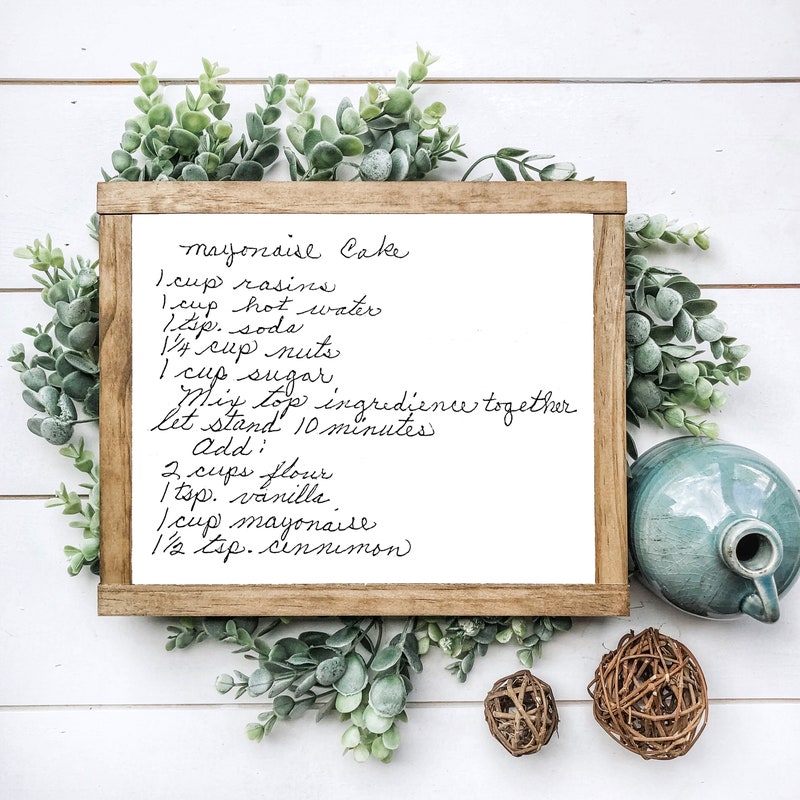 mayonaise Cake
1 cup rasins
1 cup hot water
1 tsp. soda
1 1/4 cup nuts
1 cup sugar
Mix top ingredience together
let stand 10 minutes
Add:
2 cups flour
1 tsp. vanilla
1 cup mayonaise
1 1/2 tsp. cinnimon